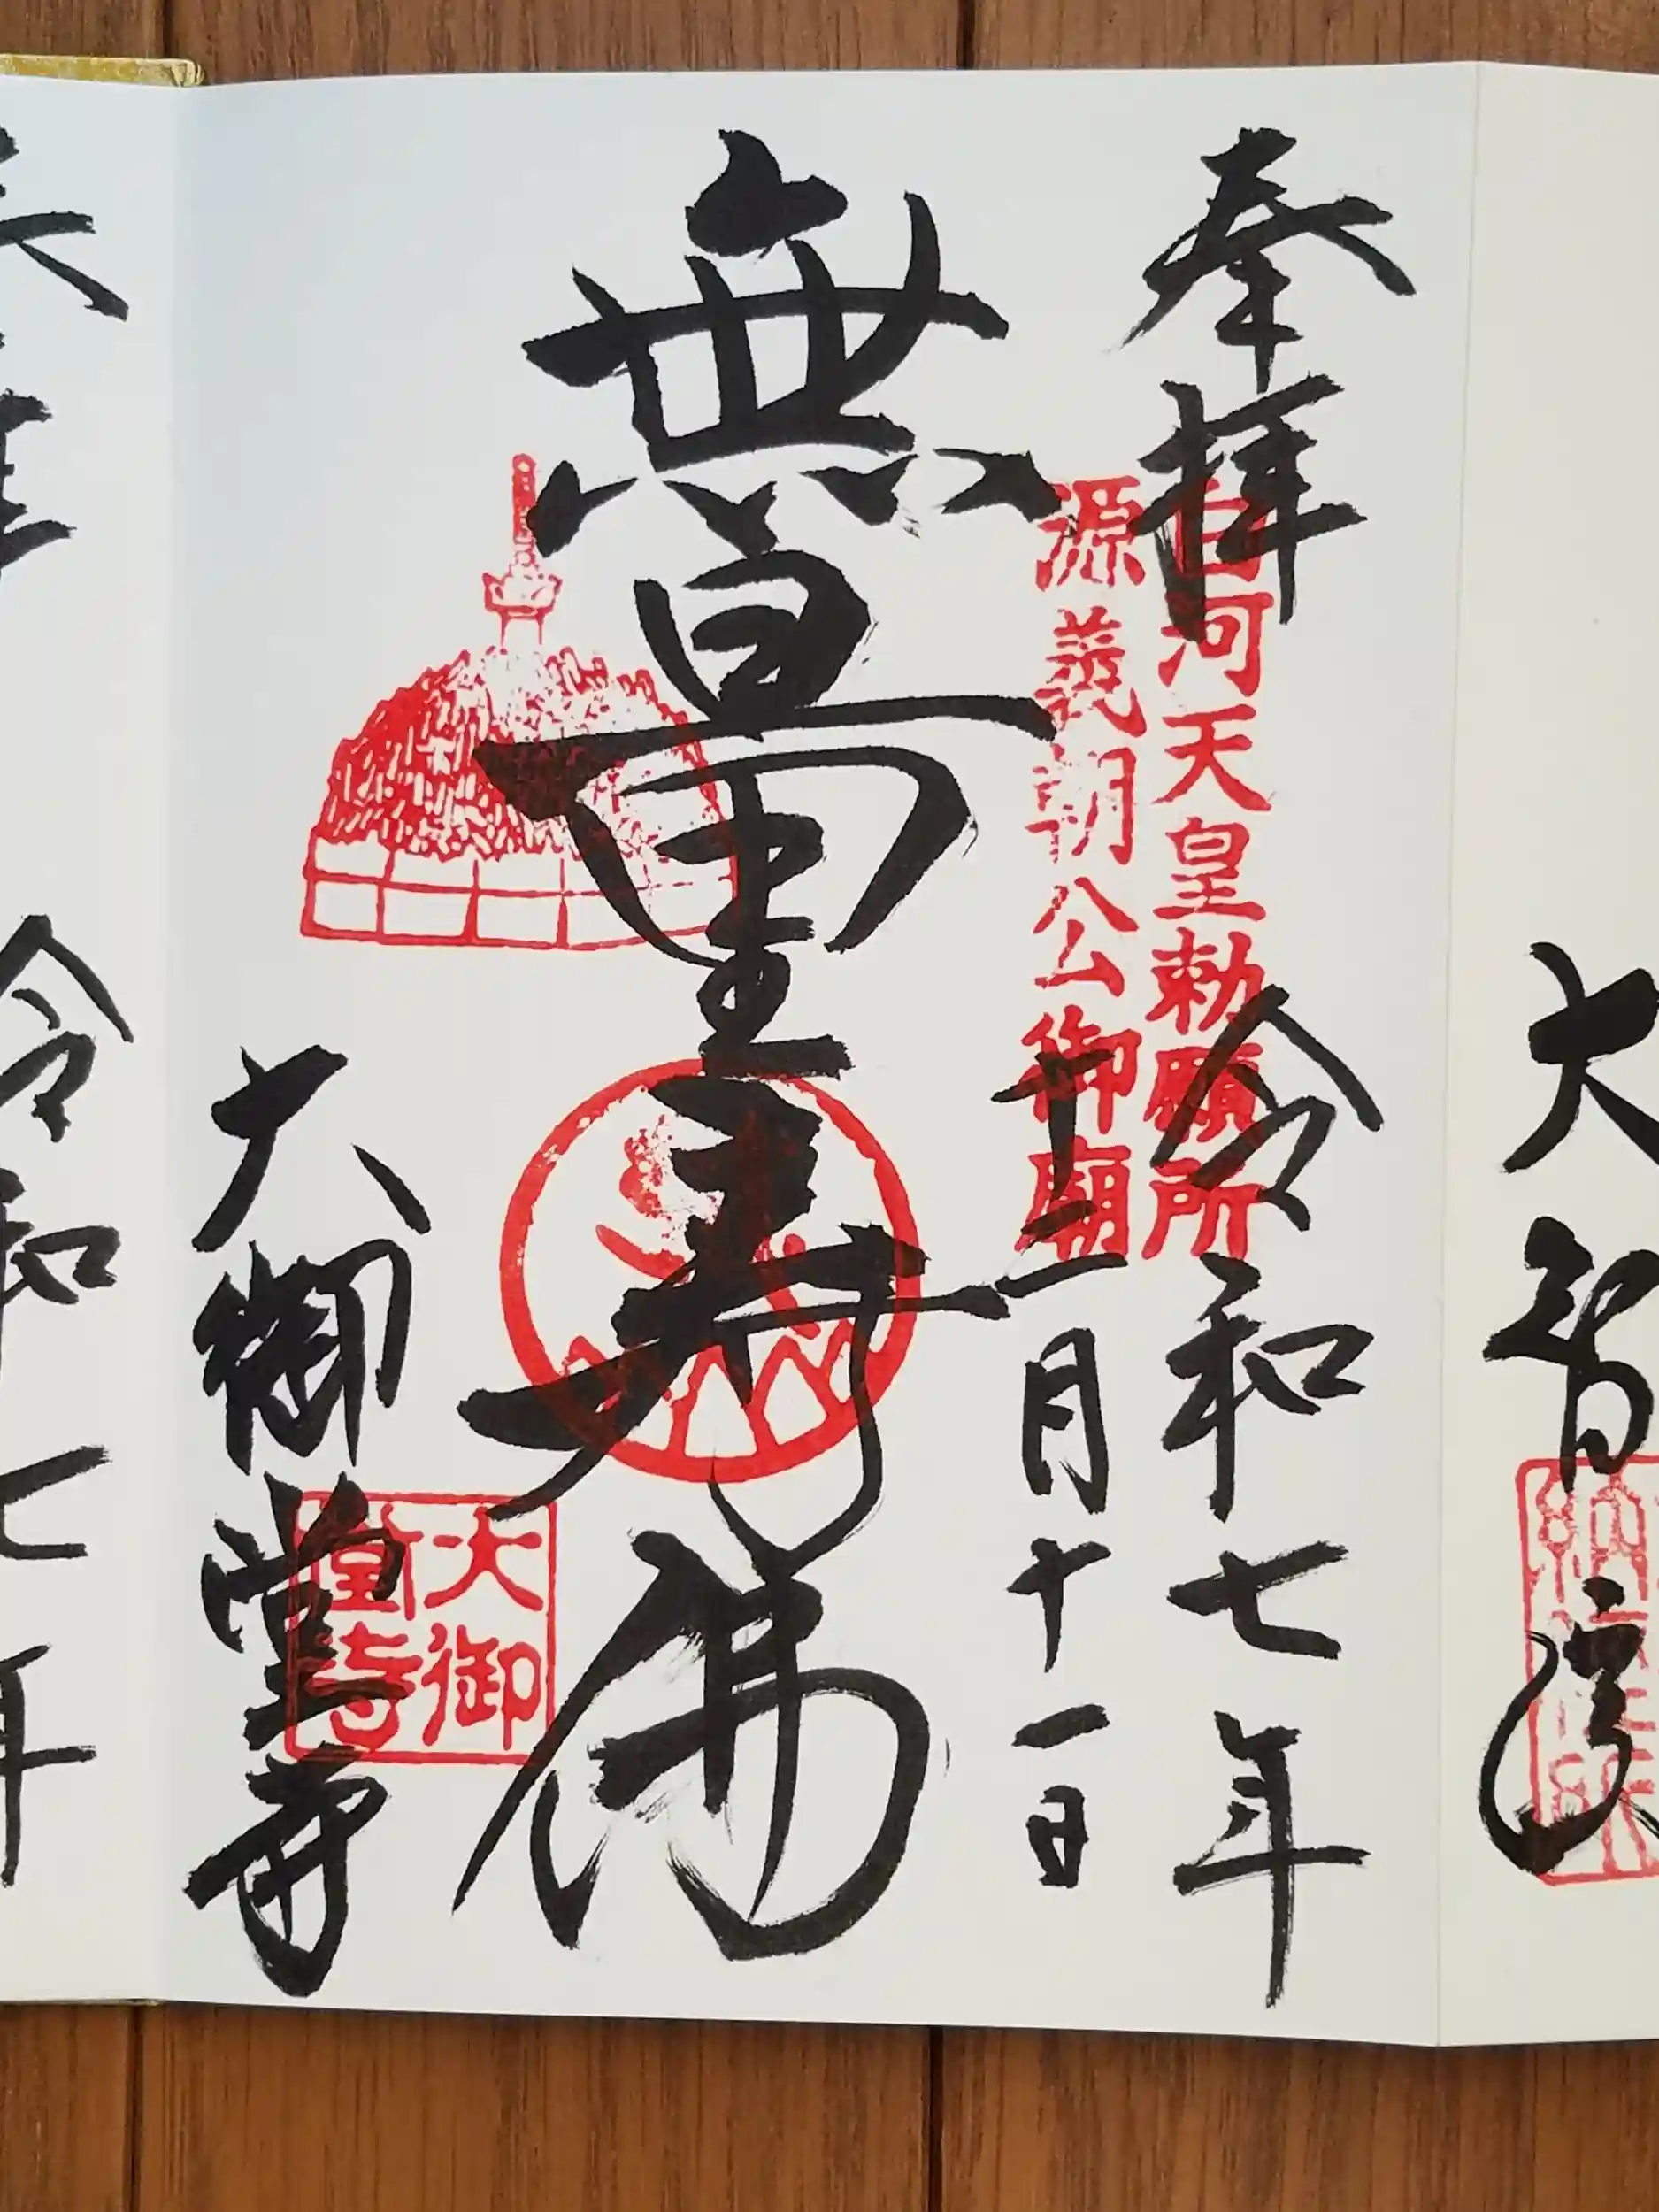 大智
奉拝
白河天皇勅願所
源義朝公御廟
令和七年
十二月十一日
無量寿佛
大御堂寺
大御
堂寺
令和七年